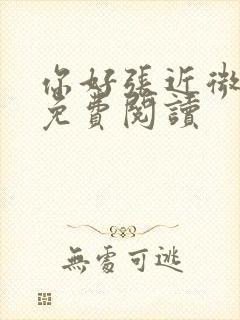 你好張近微
免費閱讀
無處可逃